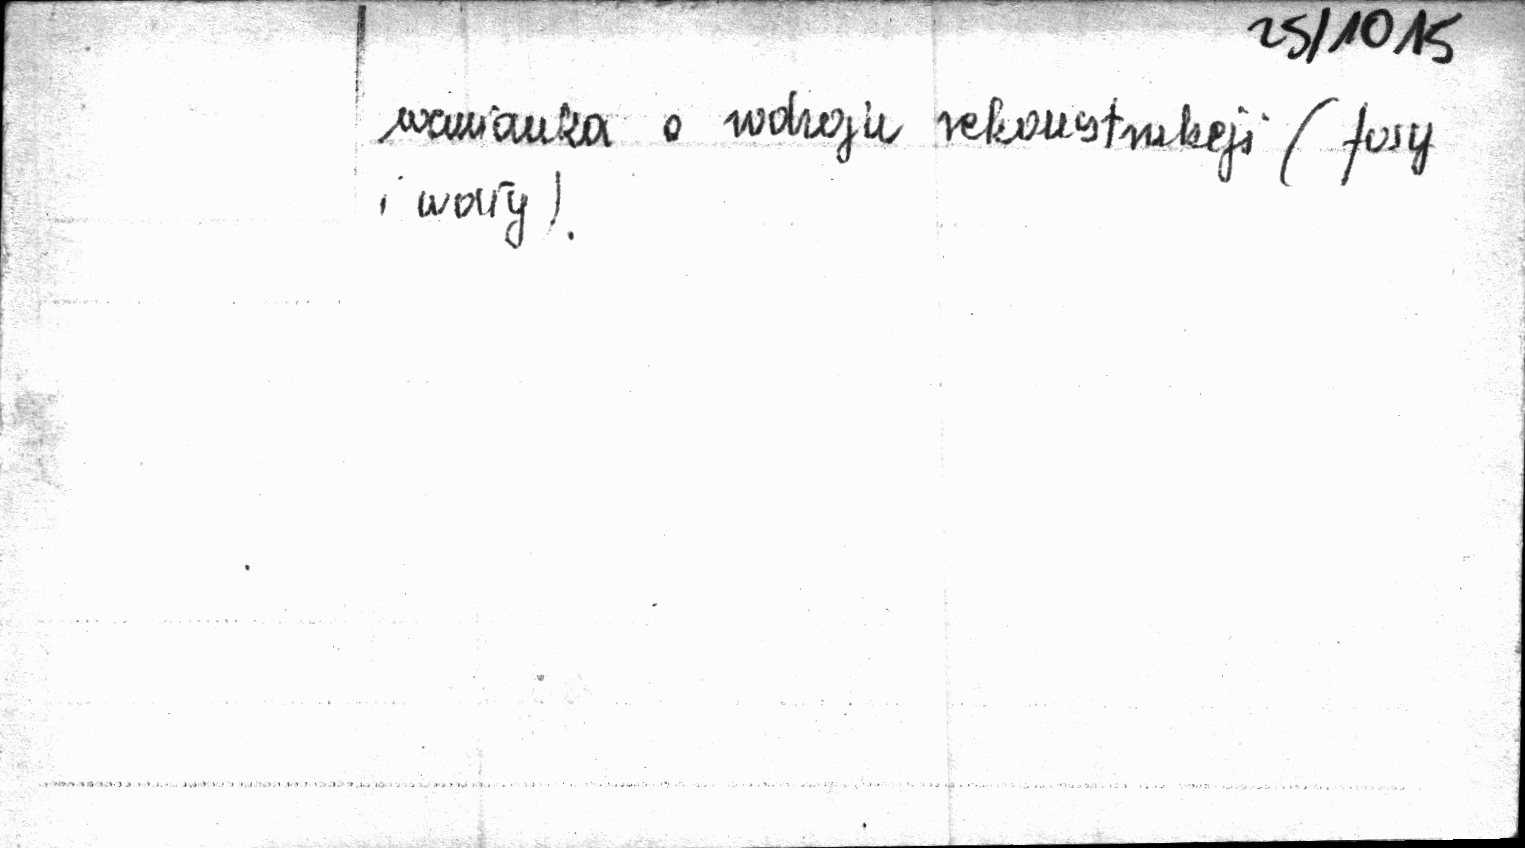 25/10 15
wzmianka o rodzaju rekonstrukcji (fosy
i wały).